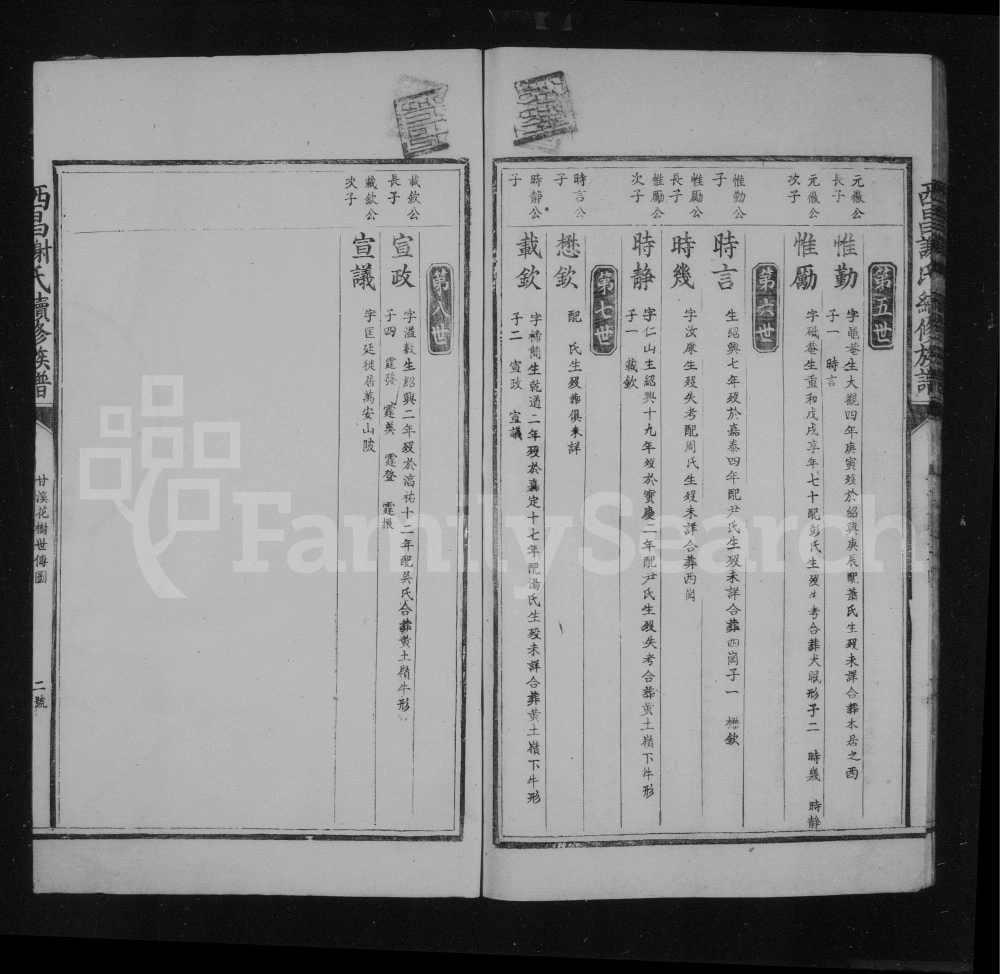 西昌謝氏續修族譜
第五世
元徽公
長子
惟勤
字黽菴生大觀四年庚寅歿於紹興庚辰配蕭氏生歿未詳合葬本居之西
子一 時言
元徽公
次子
惟勵
字砥菴生重和戊戌享年七十配彭氏生歿失考合葬犬眠形子二 時幾 時静
第六世
惟勤公
子
時言
生紹興七年歿於嘉泰四年配尹氏生歿未詳合葬西崗子一 懋欽
惟勵公
長子
時幾
字汝康生歿失考配周氏生歿未詳合葬西崗
惟勵公
次子
時静
字仁山生紹興十九年歿於寶慶二年配尹氏生歿失考合葬黄土嶺下牛形
子一 載欽
第七世
時言公
子
懋欽
配 氏生歿葬俱未詳
時静公
子
載欽
字稀蘭生乾道二年歿於嘉定十七年配湯氏生歿未詳合葬黄土嶺下牛形
子二 宣政 宣議
第八世
載欽公
長子
宣政
字溢敷生紹興二年歿於淯祐十二年配吳氏合葬黄土嶺牛形
子四 霆發 霆英 霆登 霆振
載欽公
次子
宣議
字匡廷徙居萬安山陂
西昌謝氏續修族譜
甘溪花樹世傳圖
二號
FamilySearch